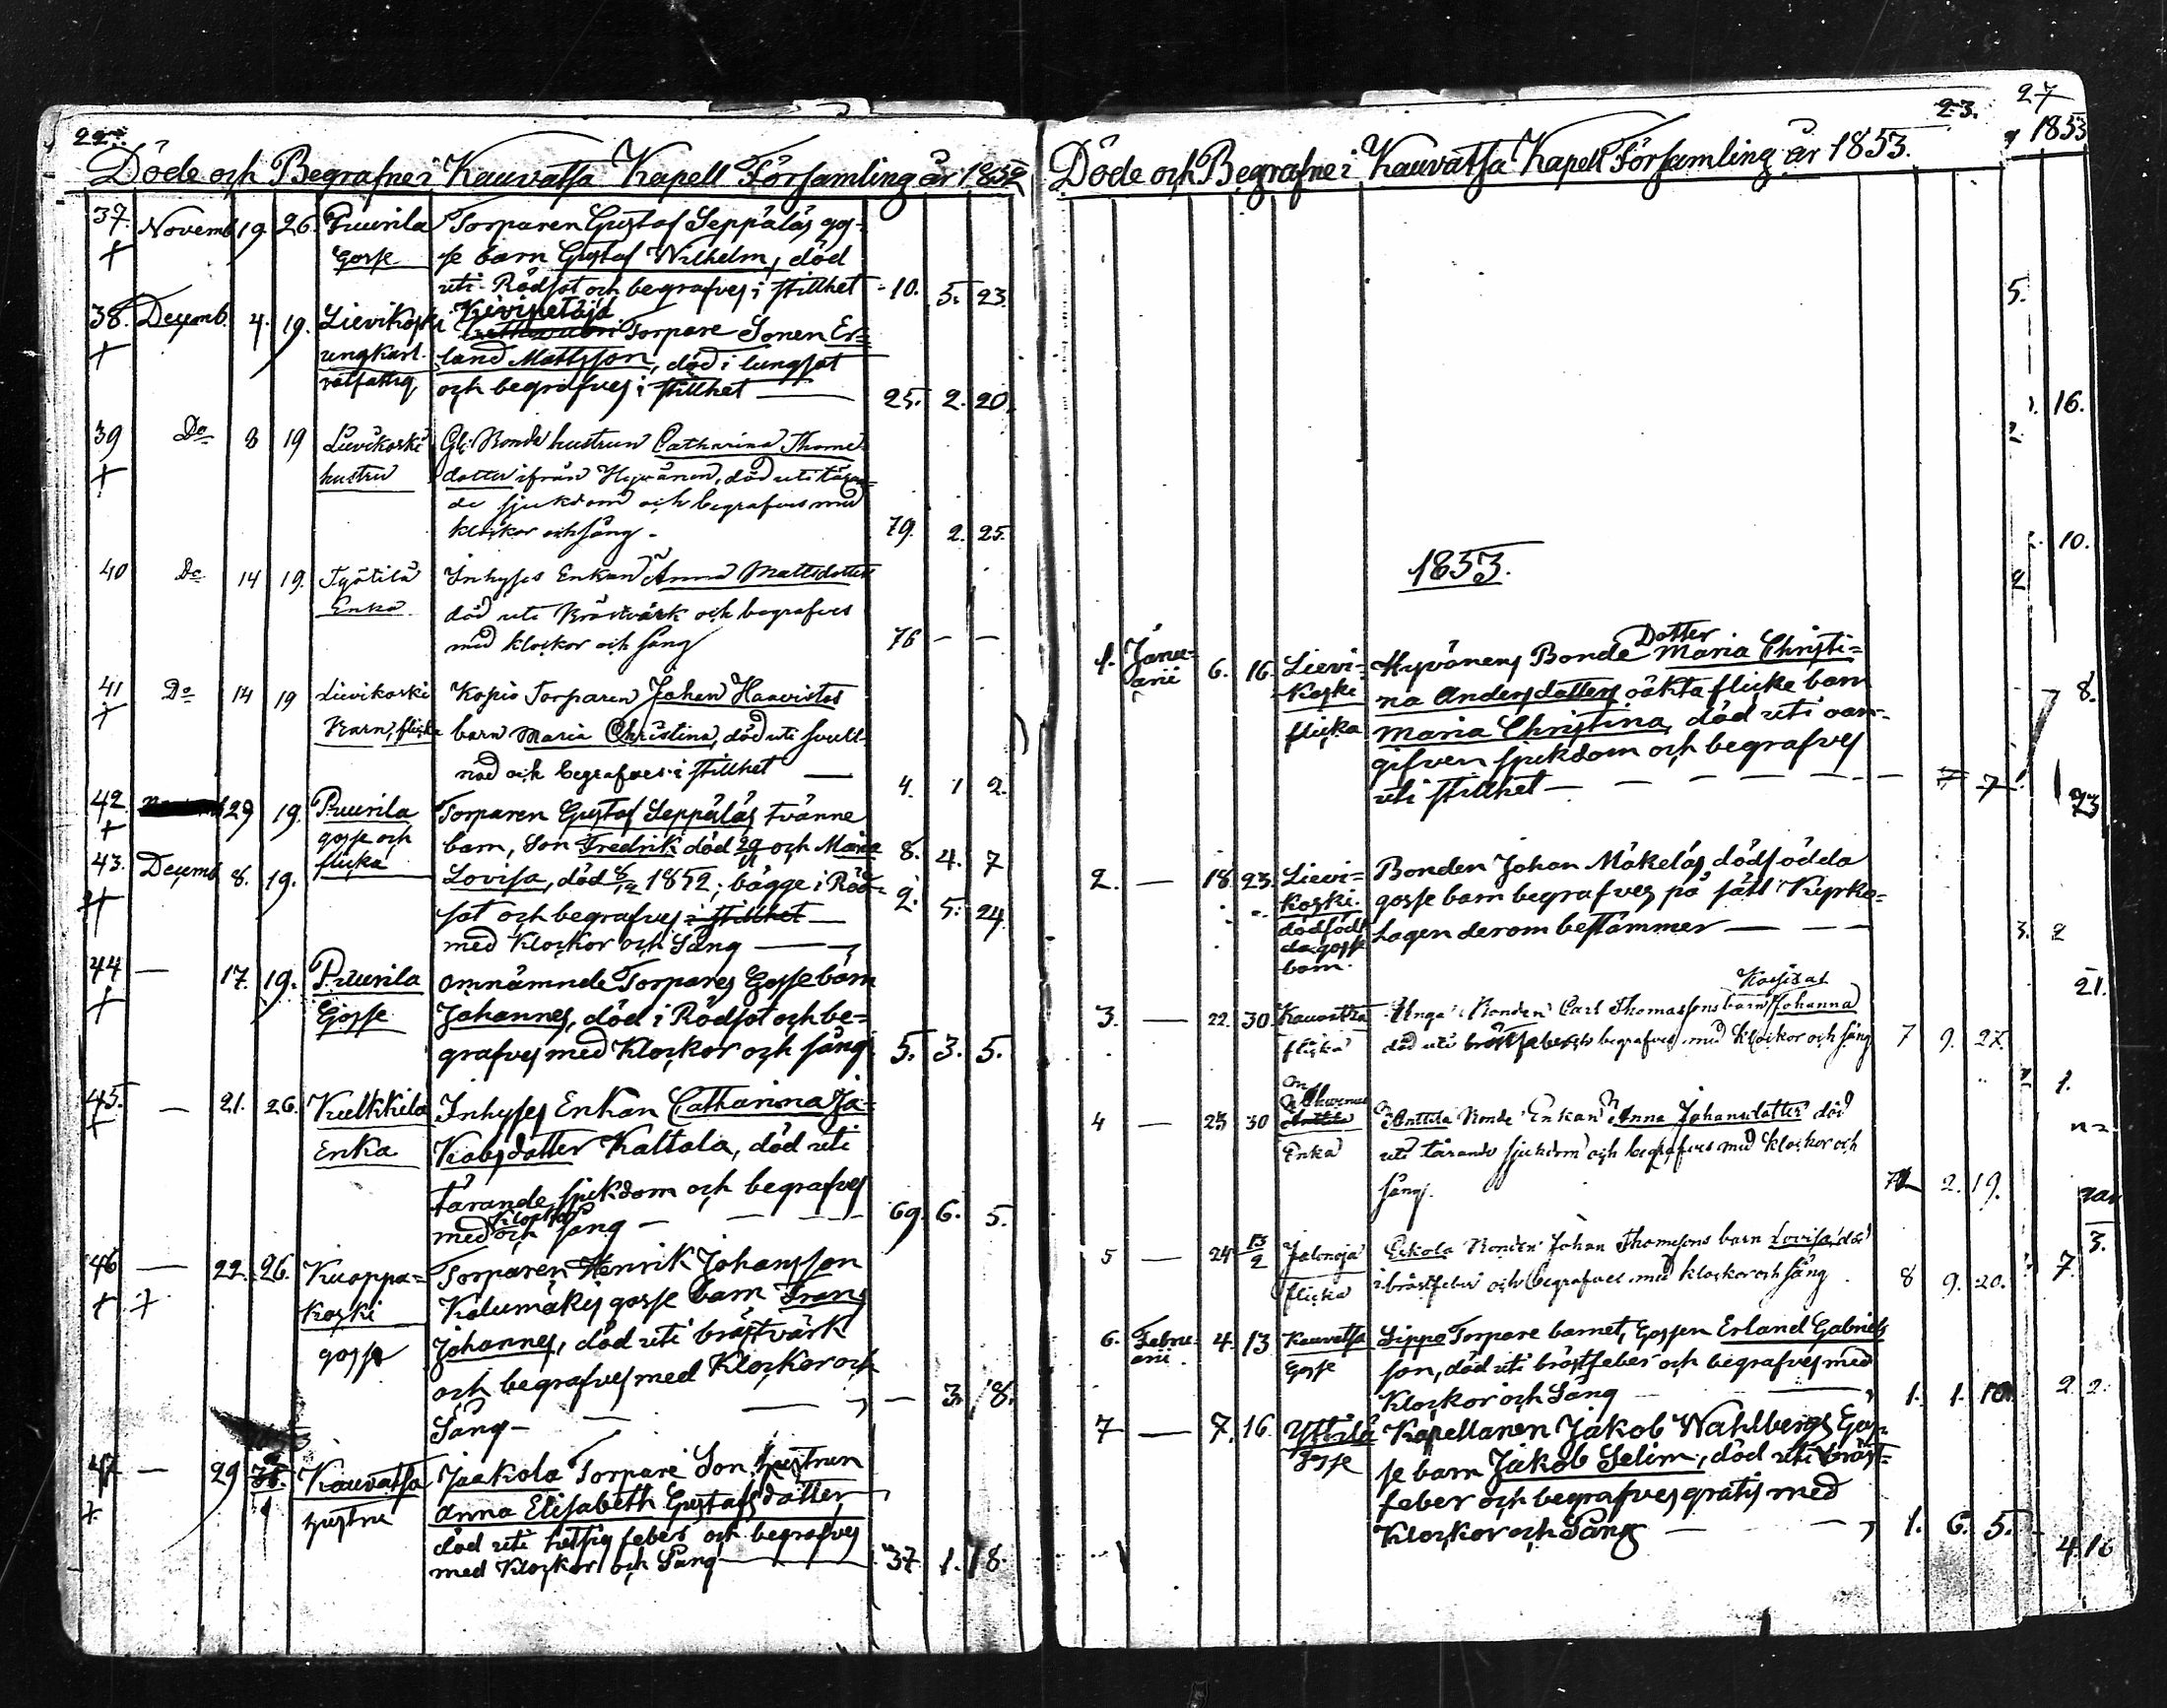 22.
Döde och Begrafne i Kauvatsa Kapell Församling år 1852
37. Novemb. 19. 26. Puurila Torparen Gustaf Seppäläs gos-
+ Gosse se barn Gustaf Wilhelm, död
uti Rödsot och begrafves i stillhet 10. 5. 23.
38. Decemb. 4. 19. Lievikoski Kivipetäjä
Torpare Sonen Er=
+ ungkarl land Mattsson, död i lungsot
och begrafves i stillhet 25. 2. 20.
39 Do 8 19 Lievikoski Gl. Bonde hustrun Catharina Thome
+ hustru dotter ifrån Hyvänen, död uti täran=
de sjukdom och begrafves med
klockor och sång. 79. 2. 25.
40 Do 14 19. Työtilä Inhyses Enkan Anna Mattsdotter
Enka död uti Bröstvärk och begrafves
med klockor och sång 76 – –
41 Do 14 19 Lievikoski Torparen Johan Haavistos
+ Barn, flicka barn Maria Christina, död uti svull-
nad och begrafves i stillhet — 4. 1 2.
42. 29 19. Puurila Torparen Gustaf Seppäläs tvänne
+ gosse och barn, Son Fredrik död 29/11 och Maria 8. 4. 7
43. Decemb 8. 19. flicka Lovisa, död 8/12 1852; bägge i Röd= 2. 5. 24.
sot och begrafves i stillhet —
med Klockor och Sång —
44 — 17. 19. Puurila omnämnde Torpares Gosse barn
+ Gosse Johannes, död i Rödsot och be=
grafves med Klockor och sång. 5. 3. 5.
45. — 21. 26. Kulkkila Inhyses Enkan Catharina Ja=
+ Enka Kobsdotter Kaltala, död uti
tärande sjukdom och begrafves
Klockor
med och sång — 69. 6. 5.
46 — 22. 26. Kuoppa= Torparen Henrik Johansson
+ + Koski Kalumäkes gosse barn Frans
gosse Johannes, död uti bröstvärk
och begrafves med Klockor och
Sång — — 3. 18.
47 — 29 Kauvatsa Jaakola Torpare Son hustrun
+ hustru Anna Elisabeth Gustafsdotter,
död uti hetsig feber och begrafves
med Klockor och Sång — 37. 1. 18.
23.
Döde och Begrafne i Kauvatsa Kapell Församling år 1853.
1853.
Dotter
1. Janu= 6. 16. Lievi= Hyvänens Bonde Maria Christi=
arii koski na Andersdotters oäkta flicke barn
flicka Maria Christina, död uti oan-
gifven sjukdom och begrafves
uti stillhet — — — 7
2. — 18. 23. Lievi= Bonden Johan Mäkeläs dödfödda
koski gosse barn begrafves på sätt Kyrko=
dödföd= Lagen derom bestämmer — —
da gosse
barn.
3. — 22. 30. Kauvatsa Unga Bonden Carl Thomassons barn Johanna
flicka död uti bröstfeber och begrafves med Klockor och sång 7 9. 27.
4 — 23 30 Anttila Bonde Enkan Anna Johansdotter död
Enka uti tärande sjukdom och begrafves med klockor och
sång. 2. 19.
5 — 24 13/2 Jalonoja Eskola Bonden Johan Thomssons barn Lovisa, död
flicka i bröstfeber och begrafves med klockor och sång 8 9. 20.
6. Febru= 4. 13 Kauvatsa Sippo Torpare barnet, Gossen Erland Gabriels
arii. Gosse son, död uti bröstfeber och begrafves med
Klockor och Sång — 1. 1. 10.
7 — 7. 16 Yttilä Kapellanen Jakob Wahlbergs Gos=
gosse se barn Jakob Selim, död uti bröst=
feber och begrafves gratis med
Klockor och Sång — 1. 6. 5.
27
1853
5.
16.
10.
8.
23
3. 2
21.
1.
3.
7.
2 2.
4. 16